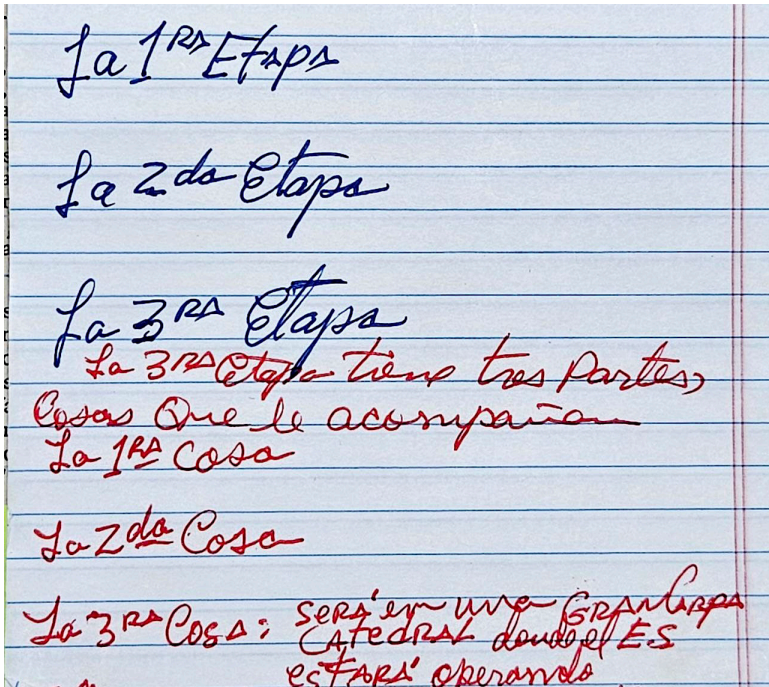 La 1RA Etapa
La 2da Etapa
La 3RA Etapa
La 3RA etapa tiene tres Partes,
Cosas Que le acompañan
La 1RA Cosa
La 2da Cosa
La 3RA Cosa: SERÁ en una GRAN CARPA
CATEDRAL donde el E.S
ESTARÁ operando